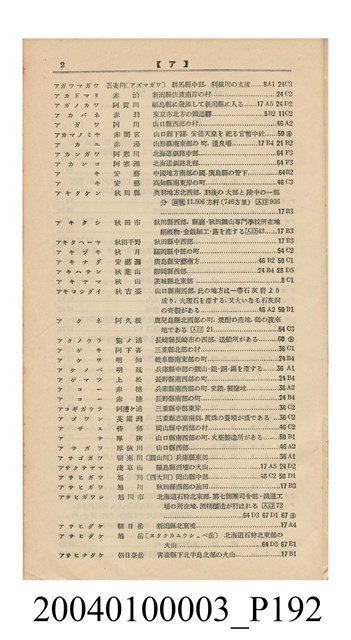 2 【ア】
アガツマガワ 吾妻川(アズマガワ) 群馬縣中部、利根川の支流……8A1 24C3
アカドマリ 赤泊 新潟縣佐渡南岸の村……24C2
アガノカワ 阿賀川 福島縣に發源して新潟縣に入る……17A5 24D2
アカバネ 赤羽 東京市北方の鐵道驛……8B2 11C2
アガワ 阿川 山口縣西部の村……46A2
アカマノミヤ 赤間宮
アカユ 赤湯 山形縣南東部の町、溫泉場……17D4 21B2
アカンガワ 阿寒川 北海道釧路中部……64F3
アカンコ 阿寒湖 北海道釧路北部……64F3
アキ 安藝 中國地方南部の國、廣島縣の管下……64B2
アキ 安藝 高知縣南東岸の町……46C3
アキタケン 秋田縣 奧羽地方北西部、羽後の大部と陸中の一部
分 面積 11,506方粁(746方里) 人口 936
……17B3
アキタシ 秋田市
……17B3
アキタヘーヤ 秋田平野 秋田縣中西部……17B3
アキヅキ 秋月 福岡縣中部の町……54C2
アキナダ 安藝灘 廣島縣安藝南方……46B2 50C1
アキハサン 秋葉山 靜岡縣西部……24B4 28D5
アキヤマ 秋山 茨城縣北東部……8C1
アキヨシダイ 秋吉臺 山口縣南西部、此の地方は一帶石灰岩より
成り、大理石を產する、又大いなる石灰洞
の奇觀がある……46A2 50B1
アクネ 阿久根
地である 人口 21……54C3
アクノウラ 飽ノ浦 長崎縣長崎市の西部、造船所がある……60
アゲキ 阿下喜 三重縣北部の村……36C1
アケチ 明知 岐阜縣南東部の町……24B4
アケノベ 明延 兵庫縣中部の鑛山、銀・銅・錫を產する……36A1
アゲマツ 上松 長野縣南西部の町……24B4
アコー 赤穗 兵庫縣南西部の町、史蹟、製鹽地……36A2
アコー 赤穗 長野縣南部の町……24B4
アコギガウラ 阿漕ケ浦 三重縣中部東岸……36C2
アゴワン 英虞灣 三重縣志摩南部、眞珠の養殖が盛である……36C2
アザエ 呰部 岡山縣中西部の村……46C2
アサ 厚狹 山口縣南西部の町、火藥製造所がある……50B1
アサガワ 厚狹川 山口縣西部……46A2
アサゴガワ 朝來川 〔圓山川〕兵庫縣東部……36A1
アサクサヤマ 淺草山 福島縣西境の火山……17A5 24D2
アサヒガワ 旭川 〔西大川〕岡山縣中部……46C2 50D1
アサヒガワ 旭川 秋田縣西部の法川……17B3
アサヒガワシ 旭川市 北海道石狩北東部、第七師團司令部・鐵道工
場の所在地、酒精釀造が行はれる 人口 72
……64D3 67D1 67
アサヒダケ 朝日岳 新潟縣北東境……17A4
アサヒダケ 旭岳 〔ヌタクカムウシュペ岳〕 北海道石狩北東部の
火山……64D3 67E1
アサヒナダケ 朝日奈岳 青森縣下北半島北部の火山……17B1
20040100003_P192